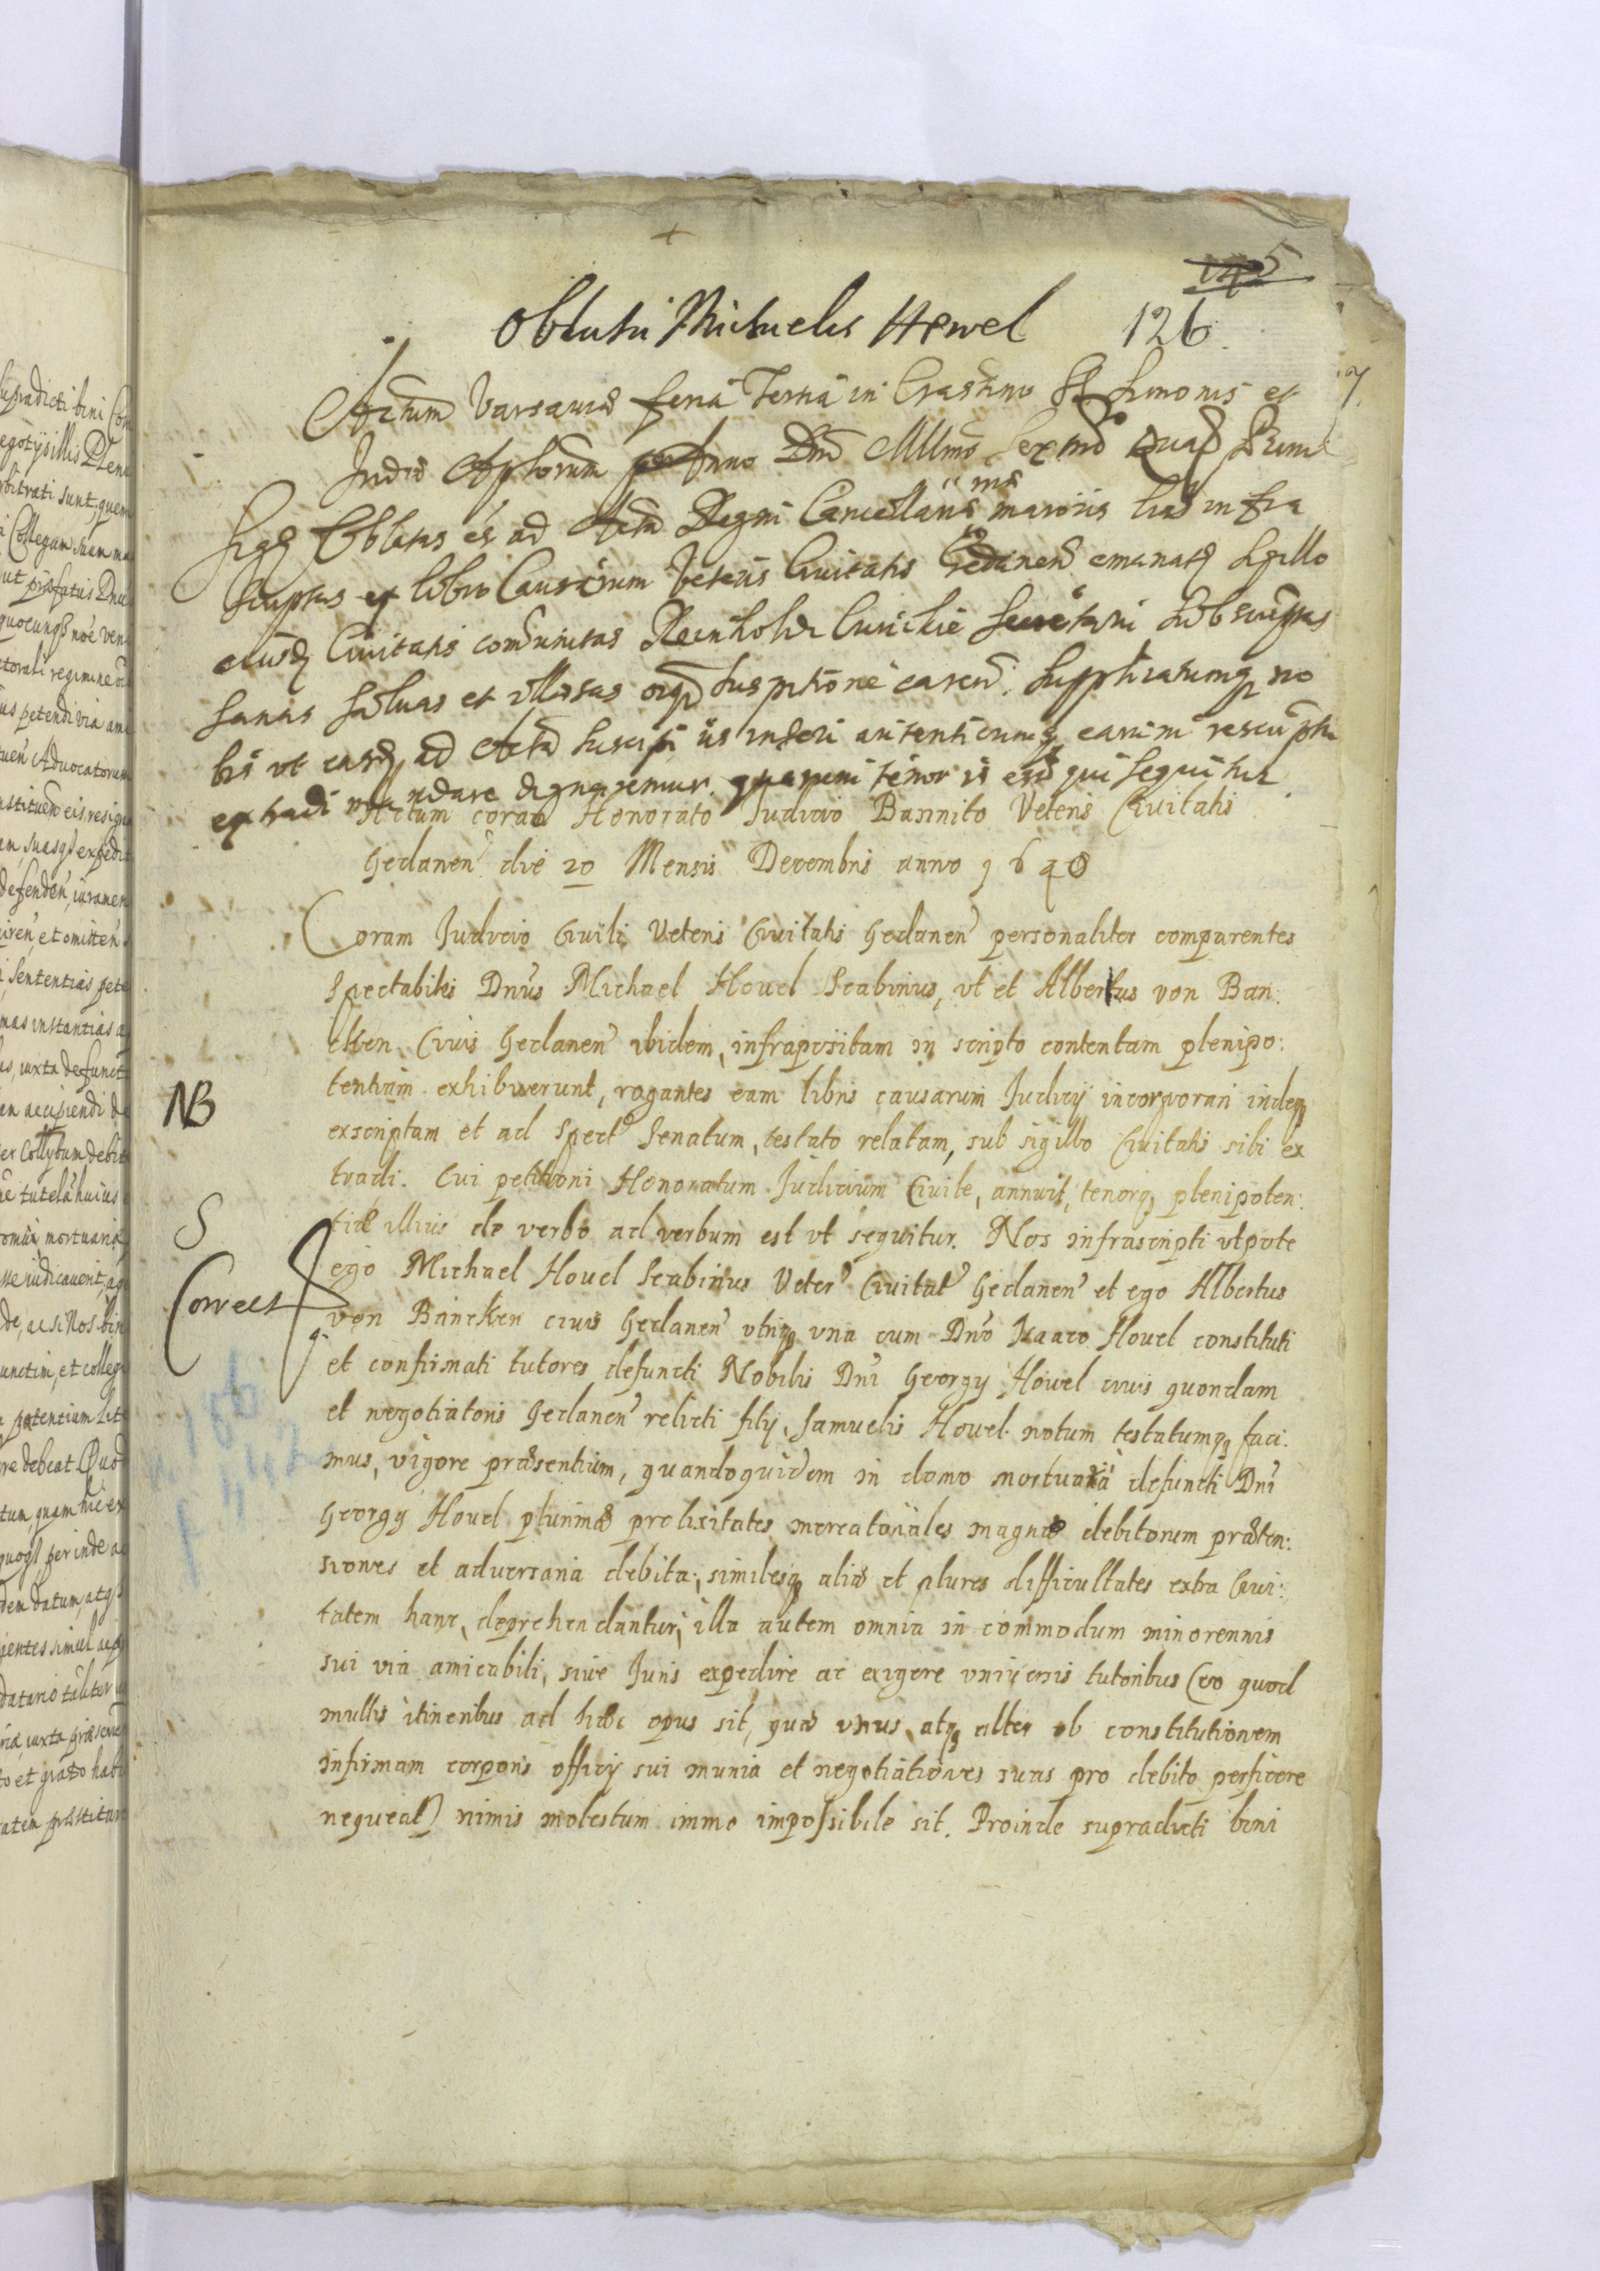 145
Oblata Michaelis Hewel 126.
Actum Varsaviæ feria Tertia in Crastino SS. Simonis et
Judæ Aplorum Anno Dni Millmo Sexmo Quad Primo
Oblatas ee ad Acta Regni Cancellariæ maioris lras infra
scriptas ex libro Causarum Veteris Civitatis Gedanen emanatas sigillo
eiusdem Civitatis com̃unitas Reinholdi Curickie Secretarii subscriptas
sanas salvas et illæsas oiq suspitione caren. Supplicatumq no
bis vt easd ad Acta suscipi iis inseri autenticumq earum rescriptu
extradi mandare dignaremur. quarum tenor is est qui sequitur
Actum coram Honorato Judicio Bannito Veteris Civitatis
Gedanen die 20 Mensis Decembris anno 1640
Coram Judicio Civili Veteris Civitatis Gedanen personaliter comparentes
Spectabilis Dnus Michael Hovel Scabinus, vt et Albertus von Ban:
cken Civis Gedanen ibidem, infrapositam in scripto contentam plenipo:
tentiam exhibuerunt, rogantes eam libris causarum Judicij incorporari indeq
exscriptam et ad Spect Senatum, testato relatam, sub sigillo Civitatis sibi ex
tradi. Cui petitioni Honoratum Judicium Civile, annuit, tenorq plenipoten:
tiæ illius de verbo ad verbum est vt sequitur. Nos infrascripti vtpote
ego Michael Hovel Scabinus Veter Civitat Gedanen et ego Albertus
von Bancken civis Gedanen vtriq vna cum Dno Isaaco Hovel constituti
et confirmati tutores defuncti Nobilis Dni Georgy Hövel civis quondam
et negotiatoris Gedanen relicti filij Samuelis Hovel notum testatumq faci:
mus, vigore præsentium, quandoquidem in domo mortuaria defuncti Dni
Georgij Hovel plurimæ prolixitates mercatoriales magnæ debitorum præten:
siones et adversaria debita, similesq aliæ et plures difficultates extra Civi:
tatem hanc, deprehendantur, illa autem omnia in commodum minorennis
sui via amicabili, sive Juris expedire ac exigere vniversis tutoribus (eo quod
multis itineribus ad hæc opus sit, quæ vnus atq alter ob constitutionem
infirmam corporis officij sui munia et negotiationes suas pro debito perficere
nequeat) nimis molestum immo impossibile sit. Proinde supradicti bini
NB
S
Correct